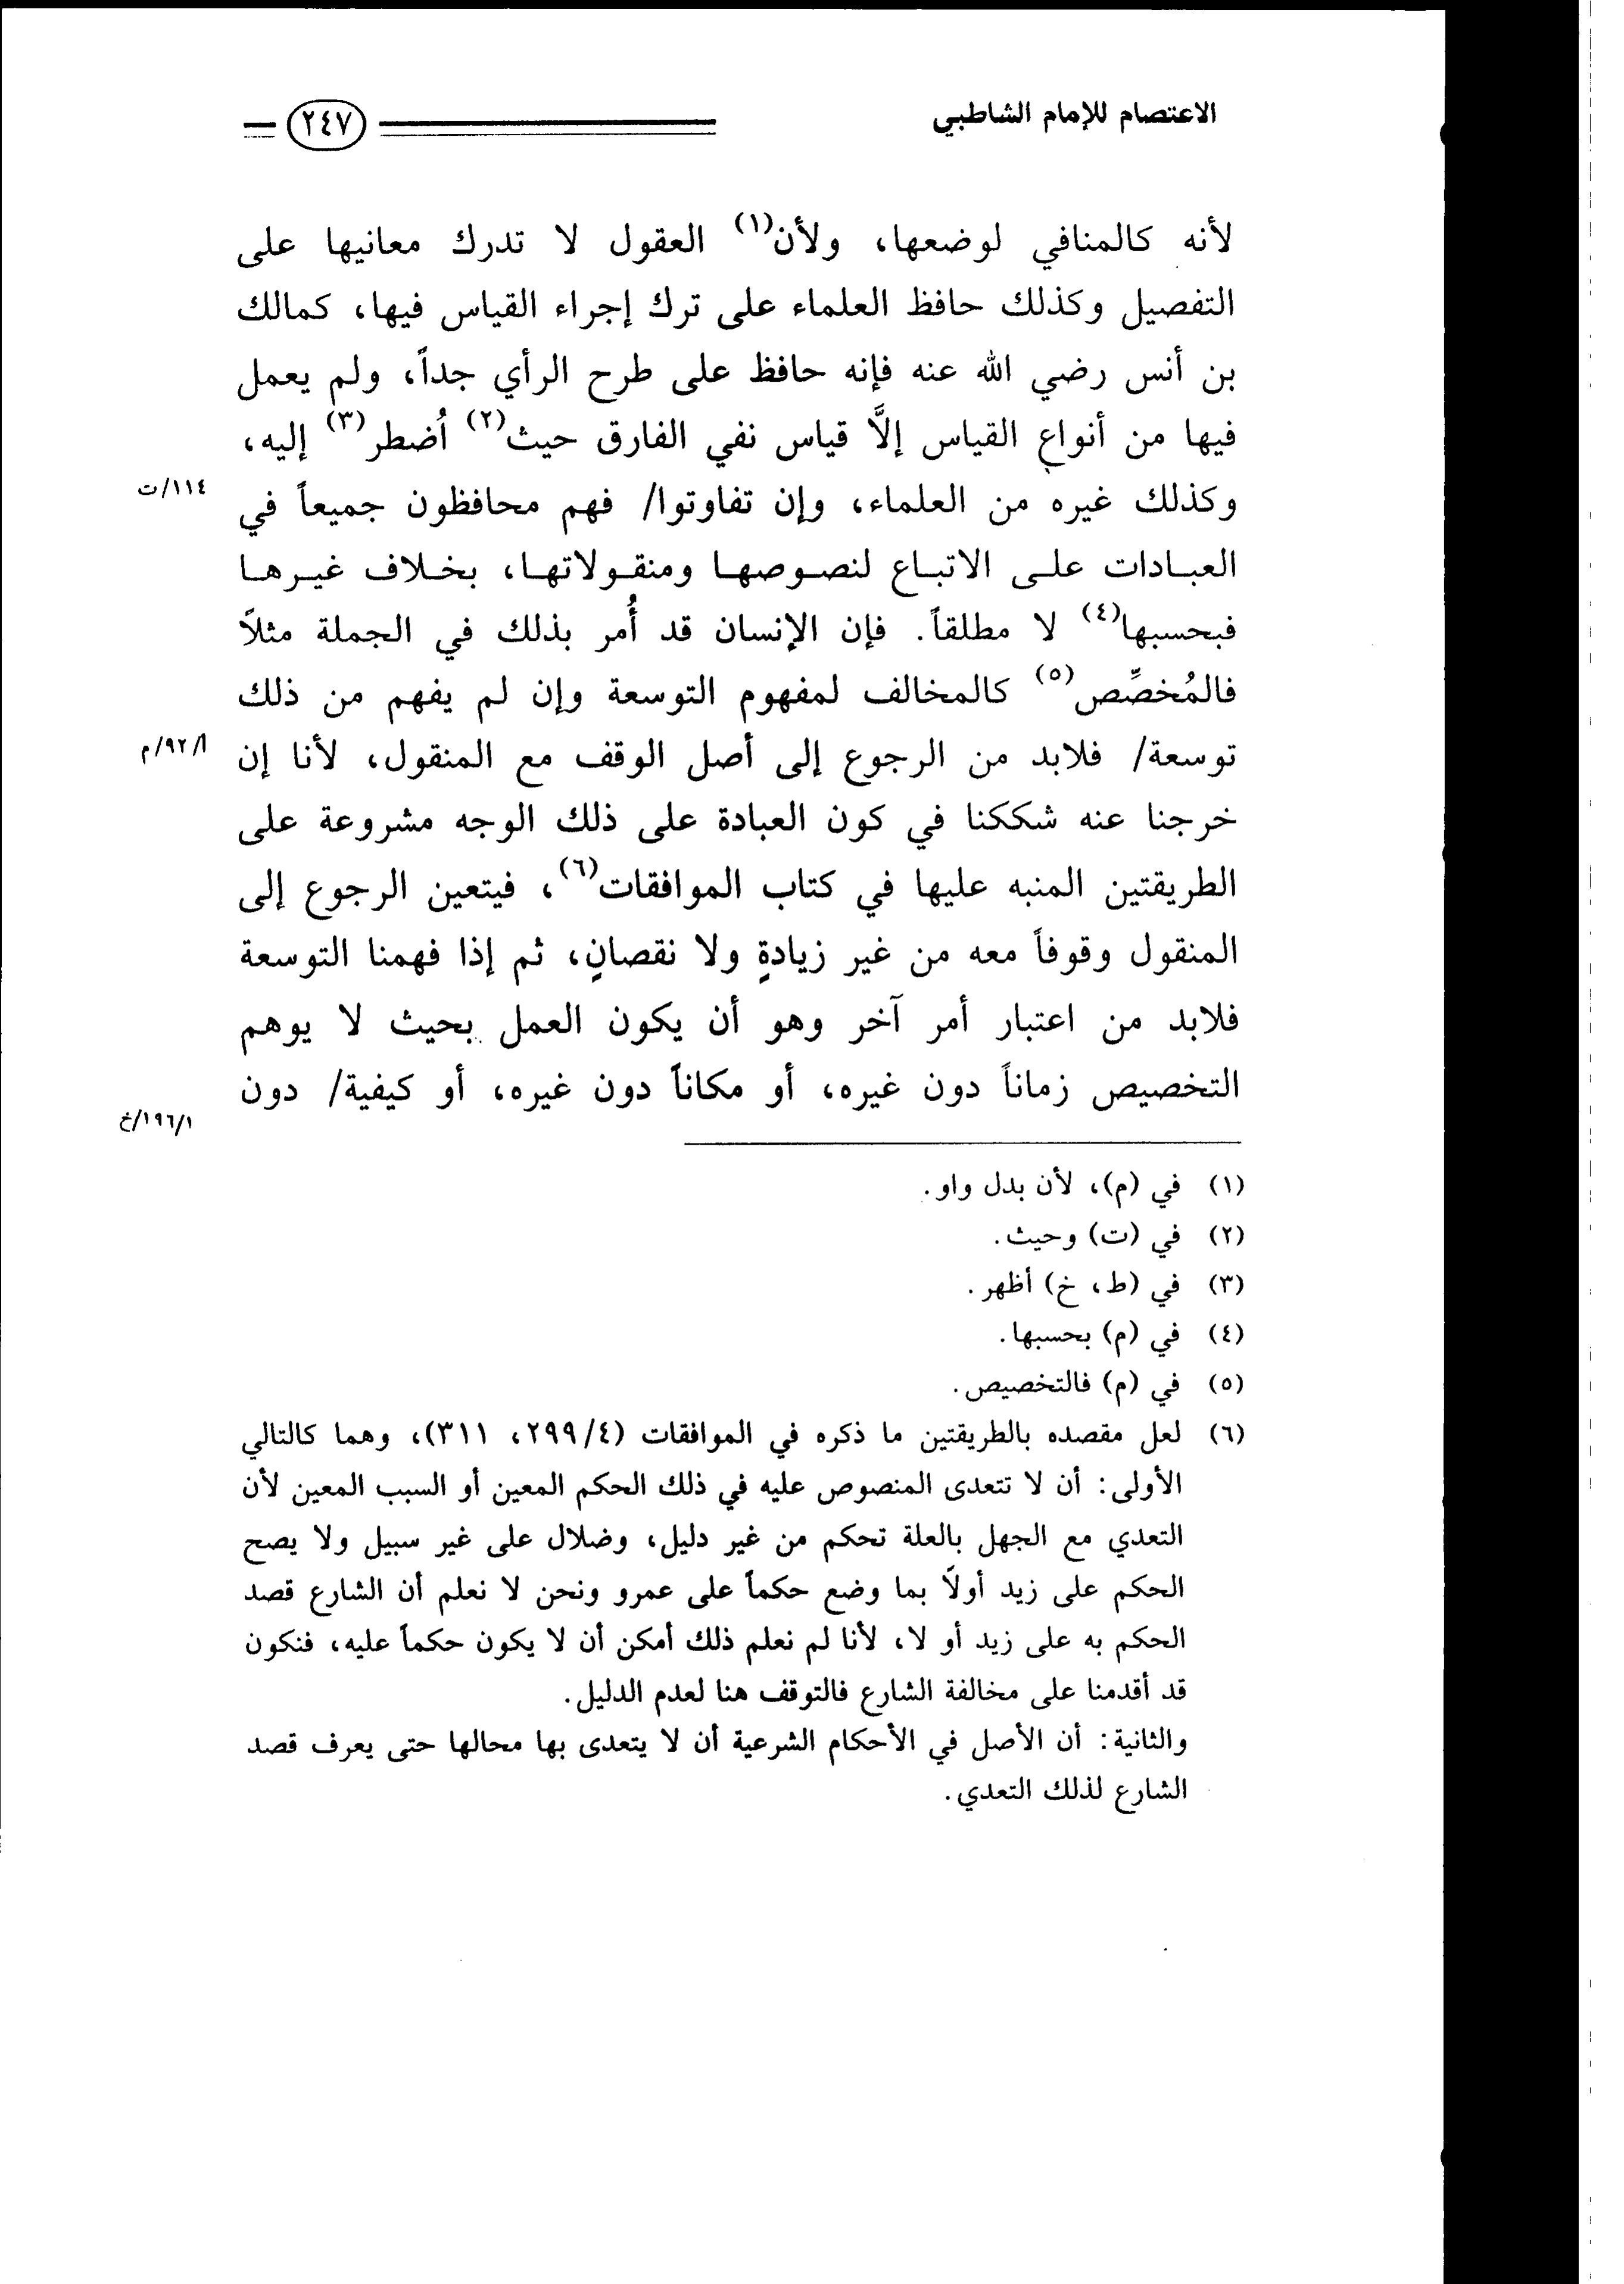 الاعتصام للإمام الشاطبي
٢٤٧
لأنه كالمنافي لوضعها، ولأن(١) العقول لا تدرك معانيها على
التفصيل وكذلك حافظ العلماء على ترك إجراء القياس فيها، كمالك
بن أنس رضي الله عنه فإنه حافظ على طرح الرأي جداً، ولم يعمل
فيها من أنواع القياس إلَّا قياس نفي الفارق حيث(٢) اُضطر(٣) إليه،
وكذلك غيره من العلماء، وإن تفاوتوا/ فهم محافظون جميعاً في
١١٤/ت
العبادات على الاتباع لنصوصها ومنقولاتها، بخلاف غيرها
فبحسبها(٤) لا مطلقاً. فإن الإنسان قد أُمر بذلك في الجملة مثلاً
فالمُخصِّص(٥) كالمخالف لمفهوم التوسعة وإن لم يفهم من ذلك
توسعة/ فلابد من الرجوع إلى أصل الوقف مع المنقول، لأنا إن
أ/٩٢/م
خرجنا عنه شككنا في كون العبادة على ذلك الوجه مشروعة على
الطريقتين المنبه عليها في كتاب الموافقات(٦)، فيتعين الرجوع إلى
المنقول وقوفاً معه من غير زيادةٍ ولا نقصانٍ، ثم إذا فهمنا التوسعة
فلابد من اعتبار أمر آخر وهو أن يكون العمل بحيث لا يوهم
التخصيص زماناً دون غيره، أو مكاناً دون غيره، أو كيفية/ دون
١٩٦/١/خ
(١) في (م)، لأن بدل واو.
(٢) في (ت) وحيث.
(٣) في (ط، خ) أظهر.
(٤) في (م) بحسبها.
(٥) في (م) فالتخصيص.
(٦) لعل مقصده بالطريقتين ما ذكره في الموافقات (٢٩٩/٤، ٣١١)، وهما كالتالي
الأولى: أن لا تتعدى المنصوص عليه في ذلك الحكم المعين أو السبب المعين لأن
التعدي مع الجهل بالعلة تحكم من غير دليل، وضلال على غير سبيل ولا يصح
الحكم على زيد أولاً بما وضع حكماً على عمرو ونحن لا نعلم أن الشارع قصد
الحكم به على زيد أو لا، لأنا لم نعلم ذلك أمكن أن لا يكون حكماً عليه، فنكون
قد أقدمنا على مخالفة الشارع فالتوقف هنا لعدم الدليل.
والثانية: أن الأصل في الأحكام الشرعية أن لا يتعدى بها محالها حتى يعرف قصد
الشارع لذلك التعدي.